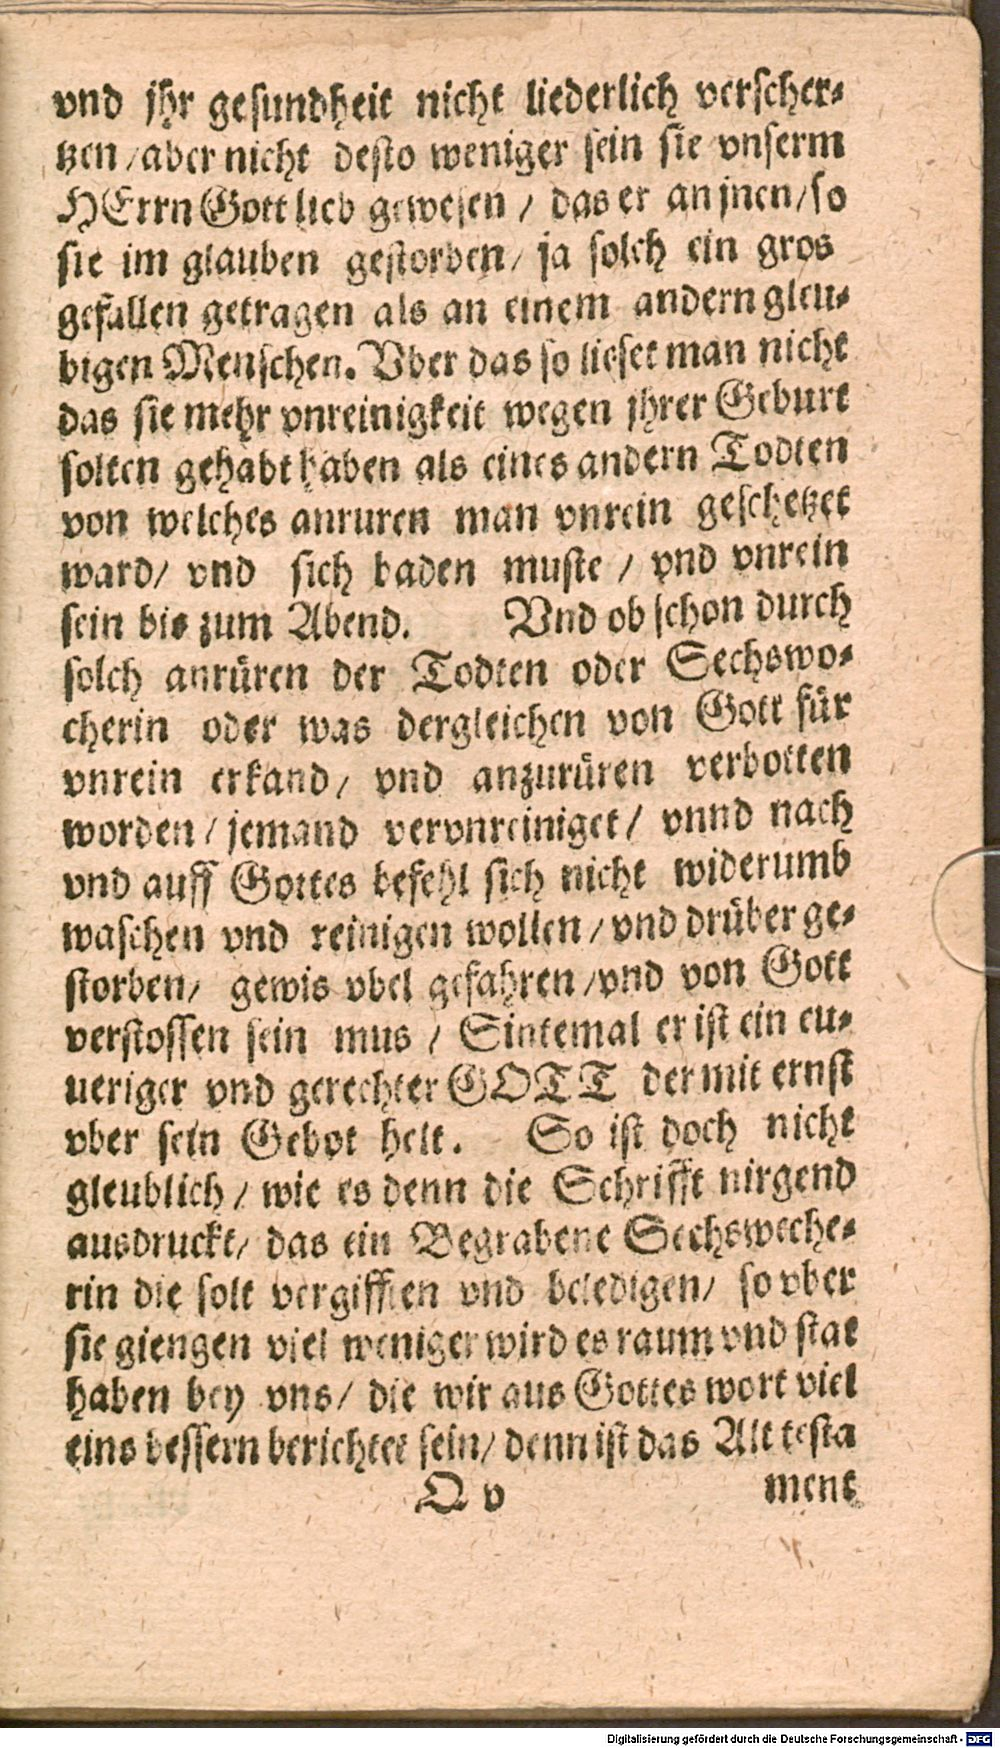 vnd jhr gesundheit nicht liederlich verscher-
tzen / aber nicht desto weniger sein sie vnserm
HErrn Gott lieb gewesen / das er an jnen / so
sie im glauben gestorben / ja solch ein gros
gefallen getragen als an einem andern gleu-
bigen Menschen. Vber das so lieset man nicht
das sie mehr vnreinigkeit wegen jhrer Geburt
solten gehabt haben als eines andern Todten
von welches anruren man vnrein geschetzet
ward / vnd sich baden muste / vnd vnrein
sein bis zum Abend. Vnd ob schon durch
solch anrüren der Todten oder Sechswo-
cherin oder was dergleichen von Gott für
vnrein erkand / vnd anzurüren verbotten
worden / jemand vervnreiniget / vnnd nach
vnd auff Gottes befehl sich nicht widerumb
waschen vnd reinigen wollen / vnd drüber ge-
storben / gewis vbel gefahren / vnd von Gott
verstossen sein mus / Sintemal er ist ein eu-
ueriger vnd gerechter GOTT der mit ernst
vber sein Gebot helt. So ist doch nicht
gleublich / wie es denn die Schrifft nirgend
ausdruckt / das ein Begrabene Sechsweche-
rin die solt vergifften vnd beledigen / so vber
sie giengen viel weniger wird es raum vnd stat
haben bey vns / die wir aus Gottes wort viel
eins bessern berichtet sein / denn ist das Alt testa
O v ment
Digitalisierung gefördert durch die Deutsche Forschungsgemeinschaft - DFG